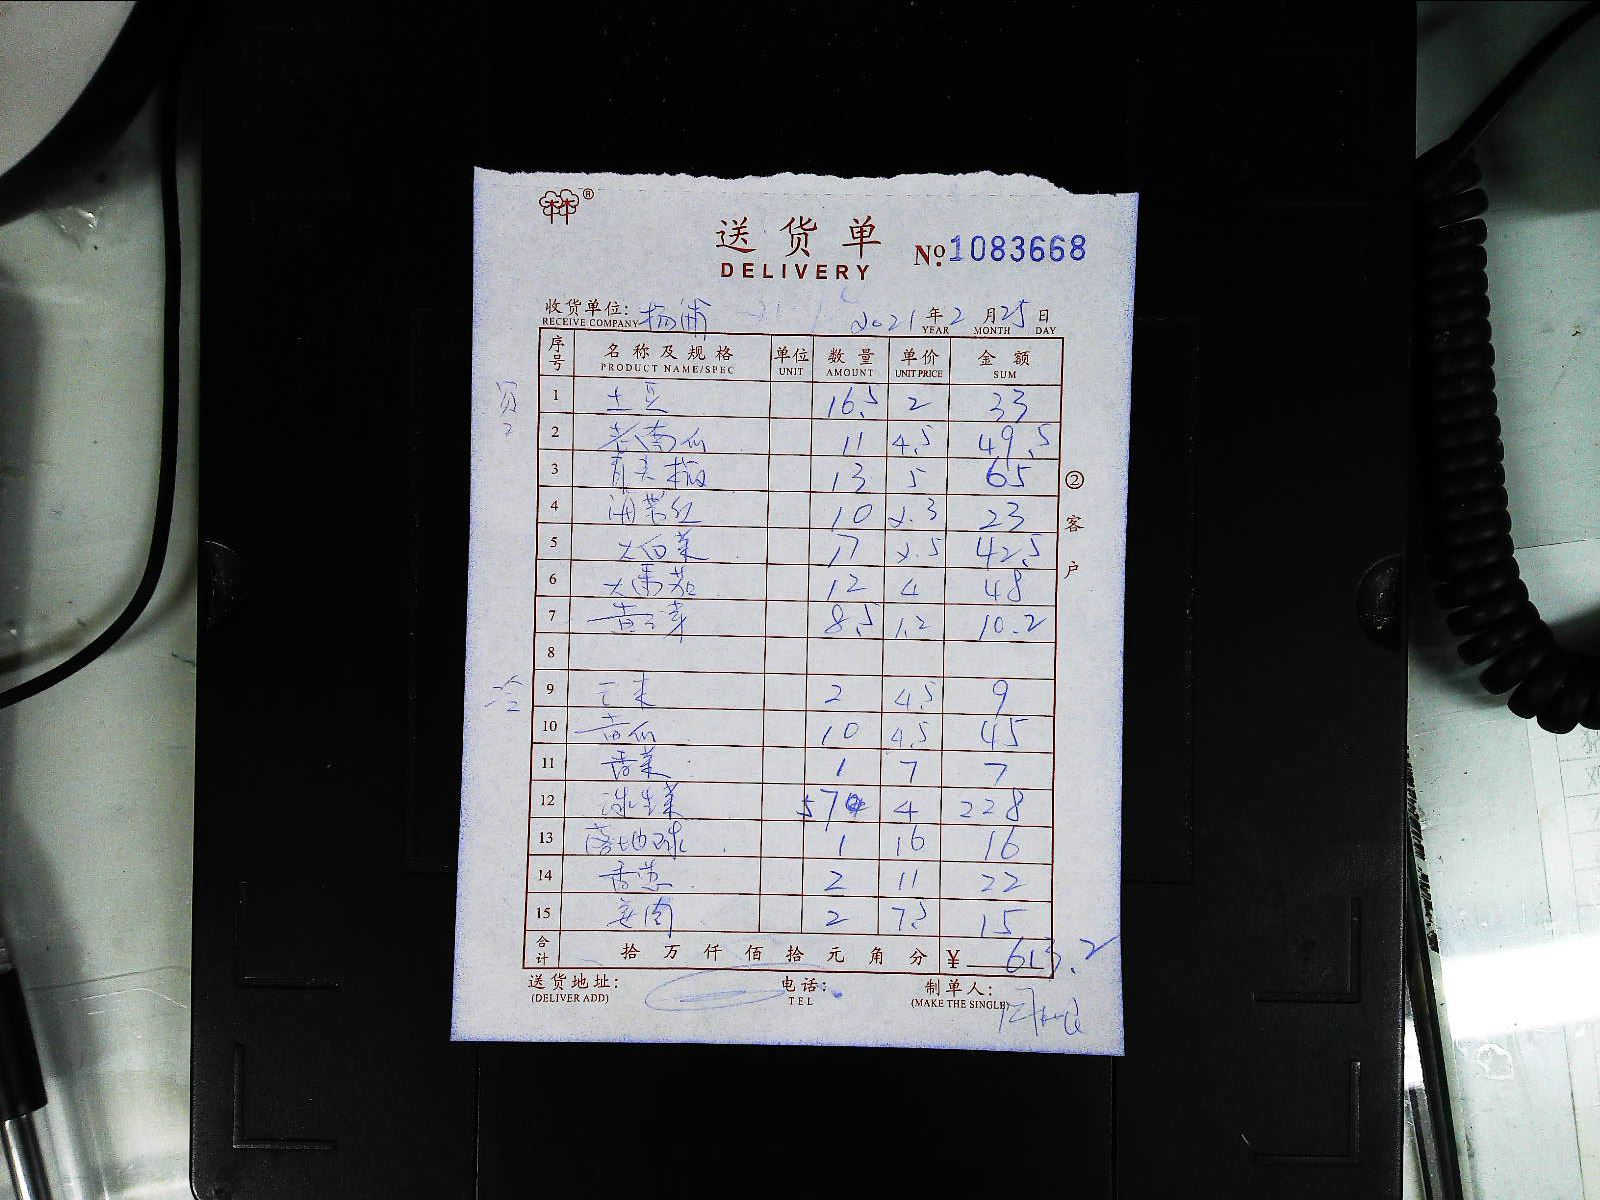 林®
送货单
DELIVERY
№ 1083668
收货单位: 杨浦 2021 年 2 月 25 日
RECEIVE COMPANY YEAR MONTH DAY
序号 名称及规格 单位 数量 单价 金额
PRODUCT NAME/SPEC UNIT AMOUNT UNIT PRICE SUM
1 土豆 16.5 2 33
2 老南瓜 11 4.5 49.5
3 13 5 65
4 10 2.3 23
5 大白菜 17 2.5 42.5
6 大番茄 12 4 48
7 黄豆芽 8.5 1.2 10.2
8
9 2 4.5 9
10 黄瓜 10 4.5 45
11 香菜 1 7 7
12 球生菜 57 4 228
13 1 16 16
14 香葱 2 11 22
15 2 7.5 15
合计 拾 万 仟 佰 拾 元 角 分 ¥ 613.2
② 客户
送货地址: 电话: 制单人:
(DELIVER ADD) TEL (MAKE THE SINGLE)